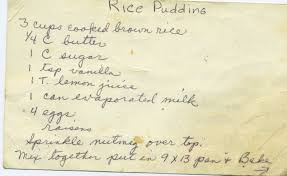 Rice Pudding
3 cups cooked brown rice
1/4 C butter
1 C sugar
1 tsp vanilla
1 T. lemon juice
1 can evaporated milk
4 eggs
raisens
Sprinkle nutmeg over top.
Mix together put in 9 X 13 pan & Bake